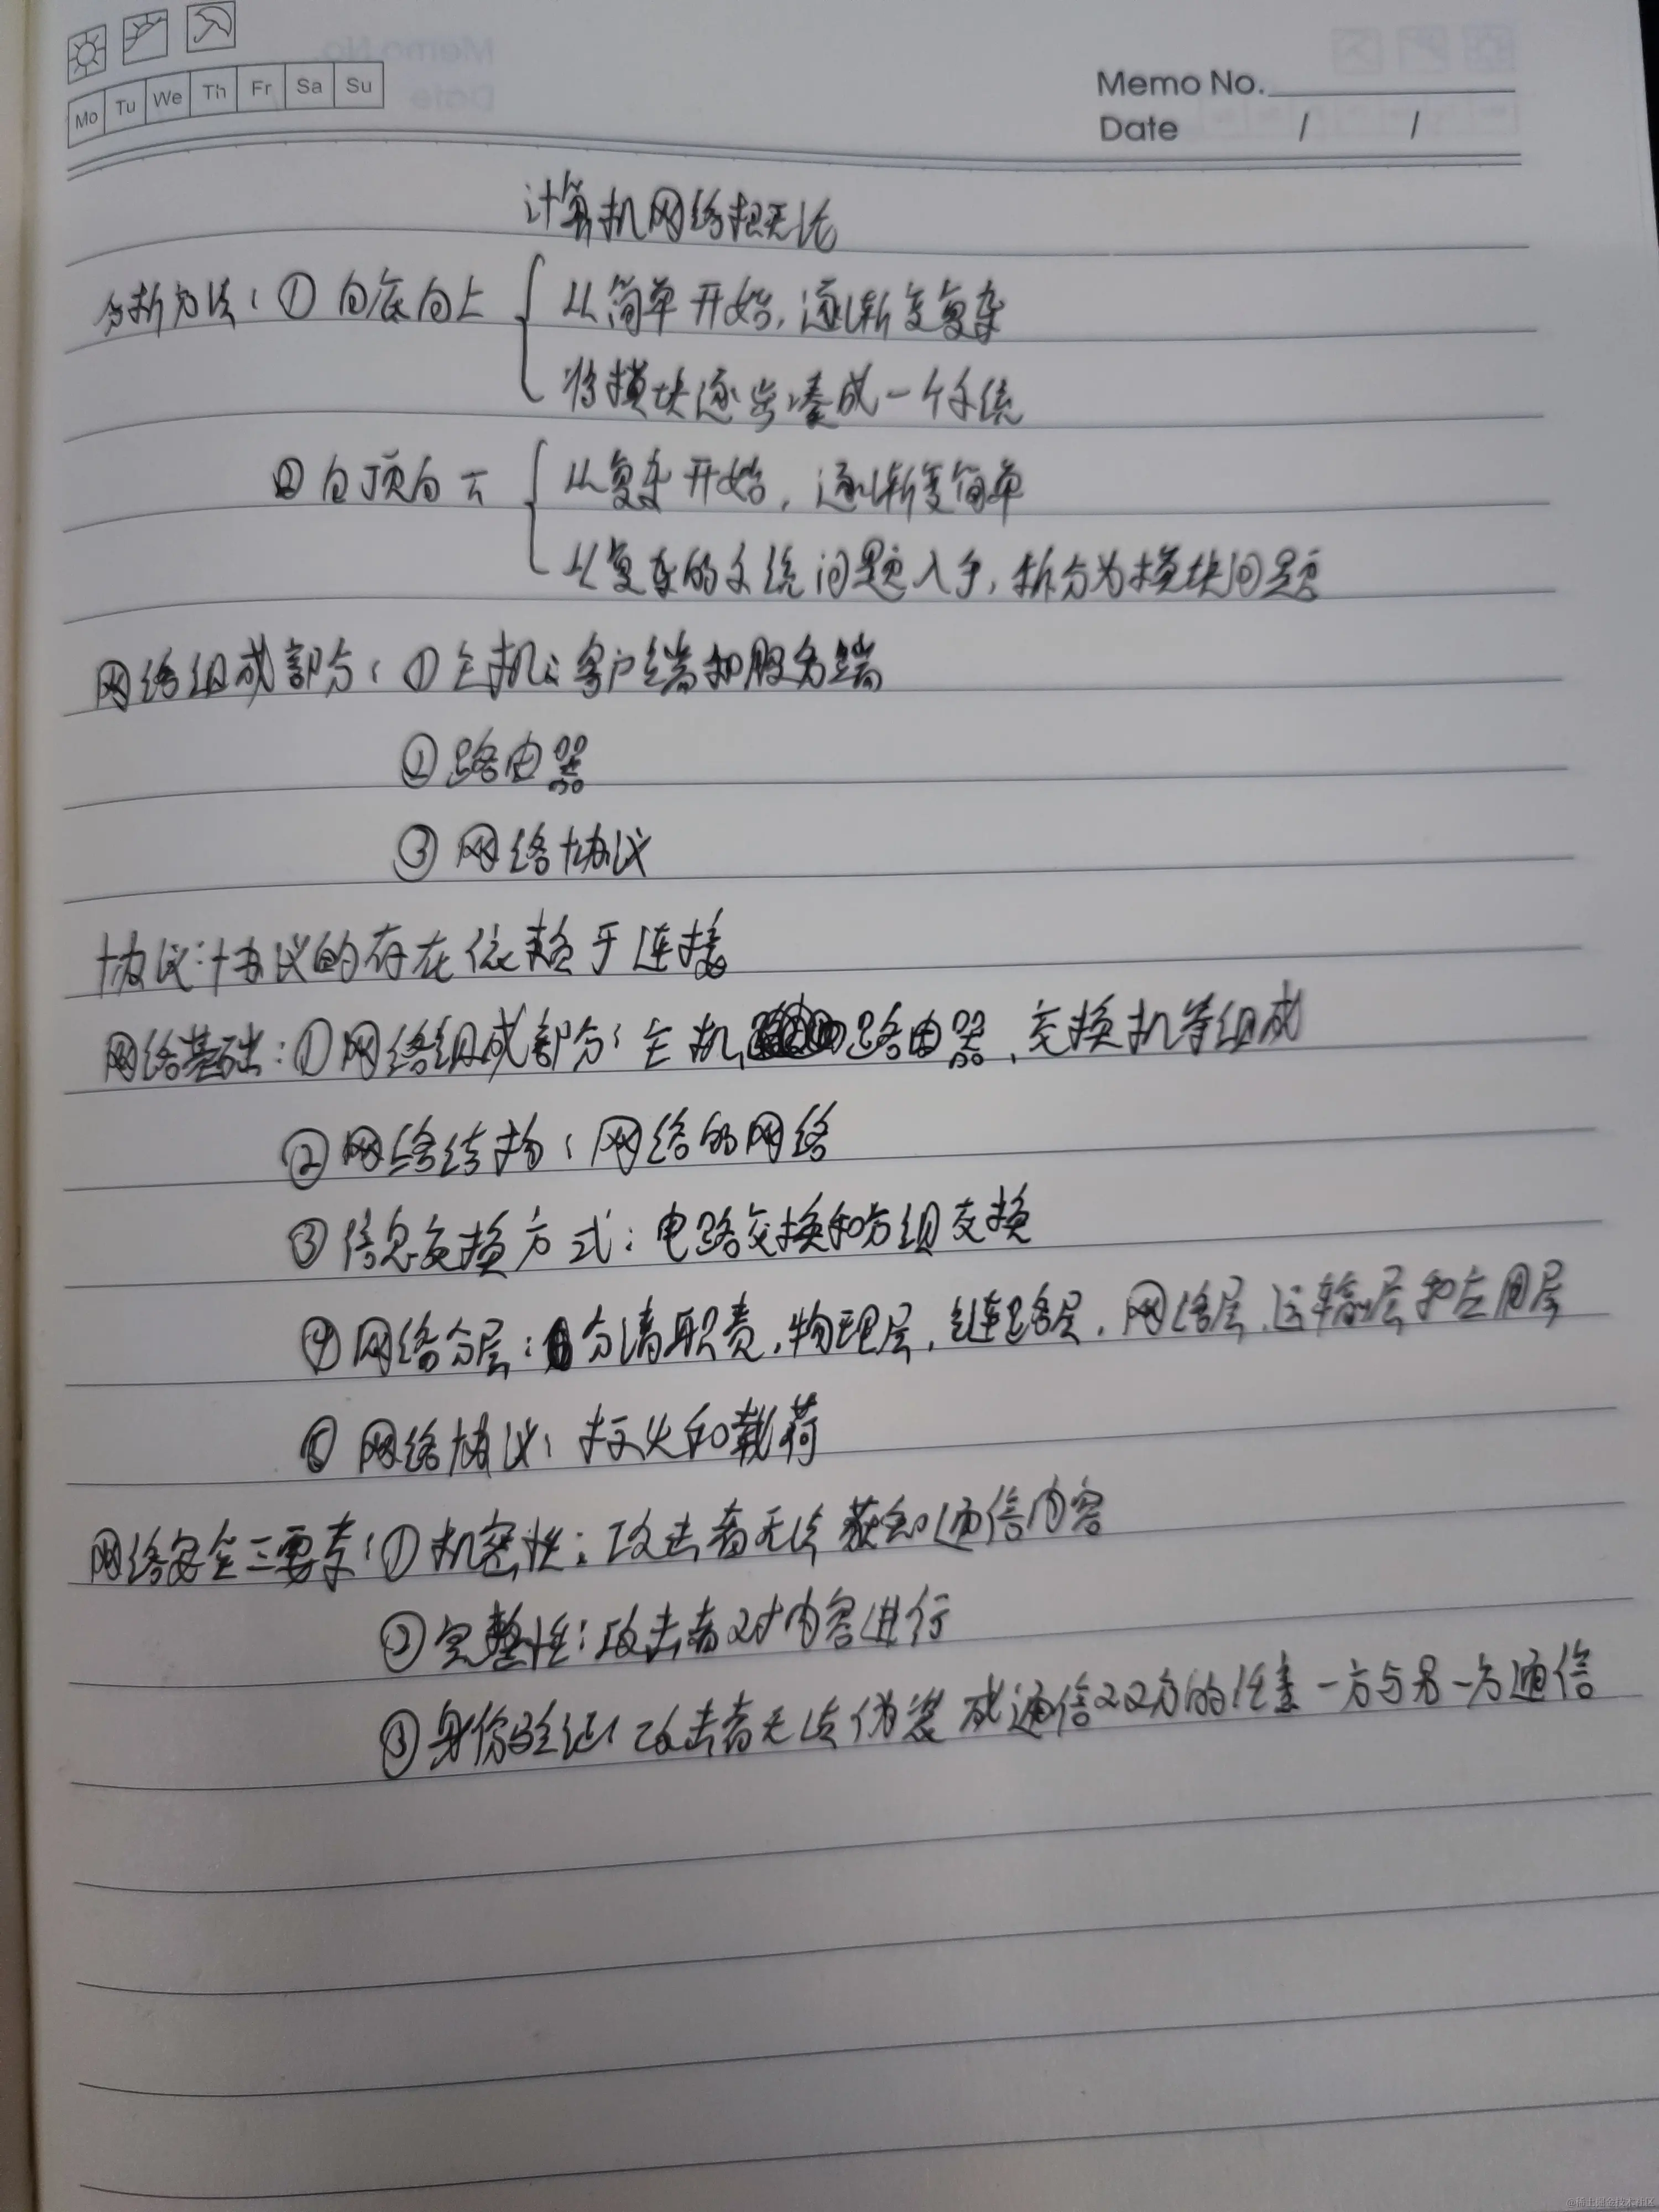 Mo Tu We Th Fr Sa Su
Memo No.
Date / /
计算机网络概论
分析方法：① 自底向上 { 从简单开始，逐渐变复杂
将模块逐步凑成一个系统
② 自顶向下 { 从复杂开始，逐渐变简单
从复杂的系统问题入手，拆分为模块问题
网络组成部分：① 主机：客户端和服务端
② 路由器
③ 网络协议
协议：协议的存在依赖于连接
网络基础：① 网络组成部分：主机、路由器、交换机等组成
② 网络结构：网络的网络
③ 信息交换方式：电路交换和分组交换
④ 网络分层：分清职责，物理层，链路层，网络层、运输层和应用层
⑤ 网络协议：标头和载荷
网络安全三要素：① 机密性：攻击者无法获知通信内容
② 完整性：攻击者对内容进行
③ 身份验证：攻击者无法伪装成通信双方的任意一方与另一方通信
@稀土掘金技术社区